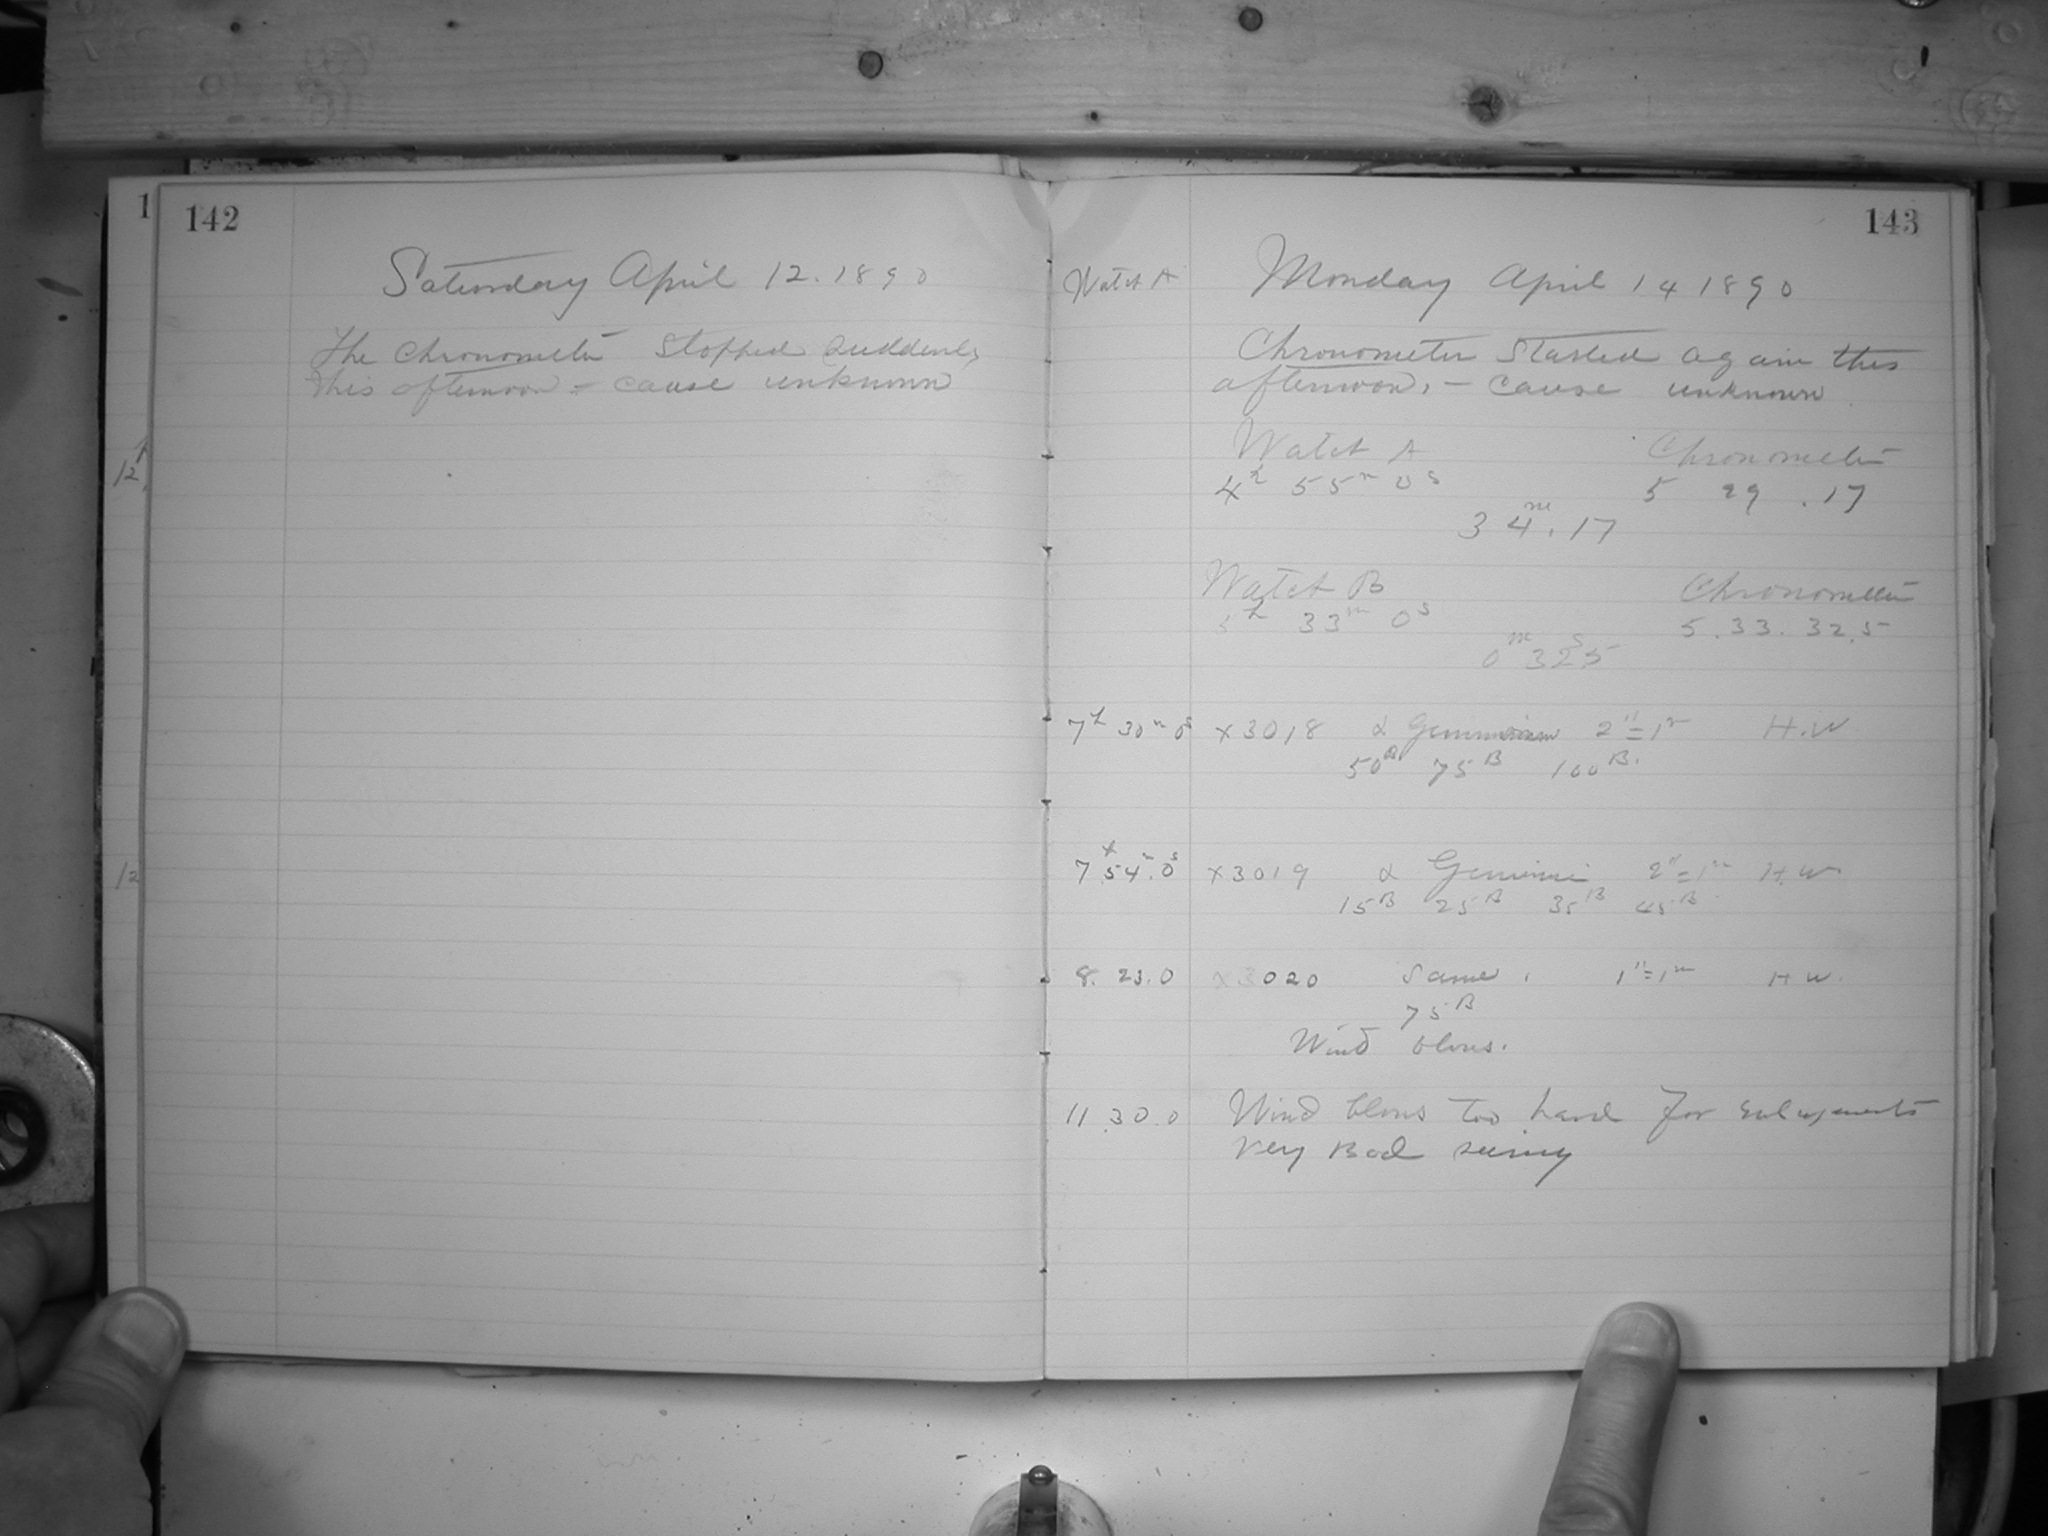 1
142
Saturday April 12. 1890
The Chronometer Stopped suddenly
this afternoon - cause unknown
12
12
143
Watch A
Monday April 14 1890
Chronometer Started again this
afternoon, - cause unknown
Watch A Chronometer
4h 55m 0s 5 29 . 17
34m. 17
Watch B Chronometer
5h 33m 0s 5. 33. 32.5
0m 32s.5
7h 30m 0s X3018 α Geminorum 2"=1m H.W
50B 75B 100B.
7h 54m. 0s X3019 α Gemini 2"=1m H.W
15B 25B 35B 45B
8. 23. 0 X3020 Same . 1"=1m H W.
75B
Wind blows.
11 30. 0 Wind blows too hard for enlargements
very Bad seeing